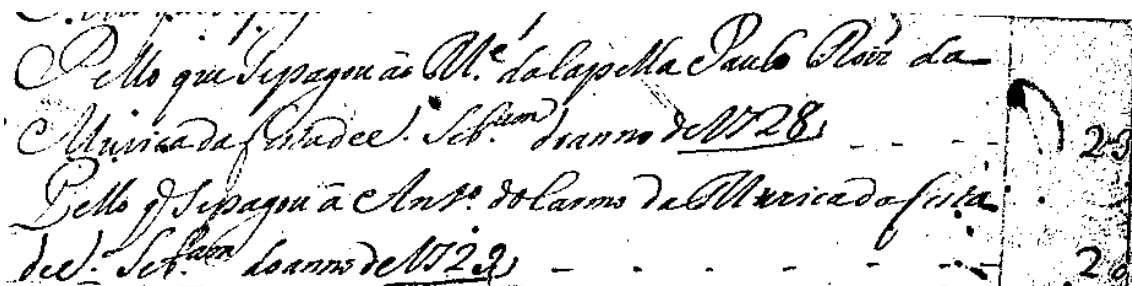 Pello que Sepagou ão M.e dalapella Paulo Roiz da
Muzica da festa de S. Seb.am do anno de 1728 23
Pello q̃ Sepagou a Ant.o do Carmo da Muzica da festa
de S. Seb.am do anno de 20